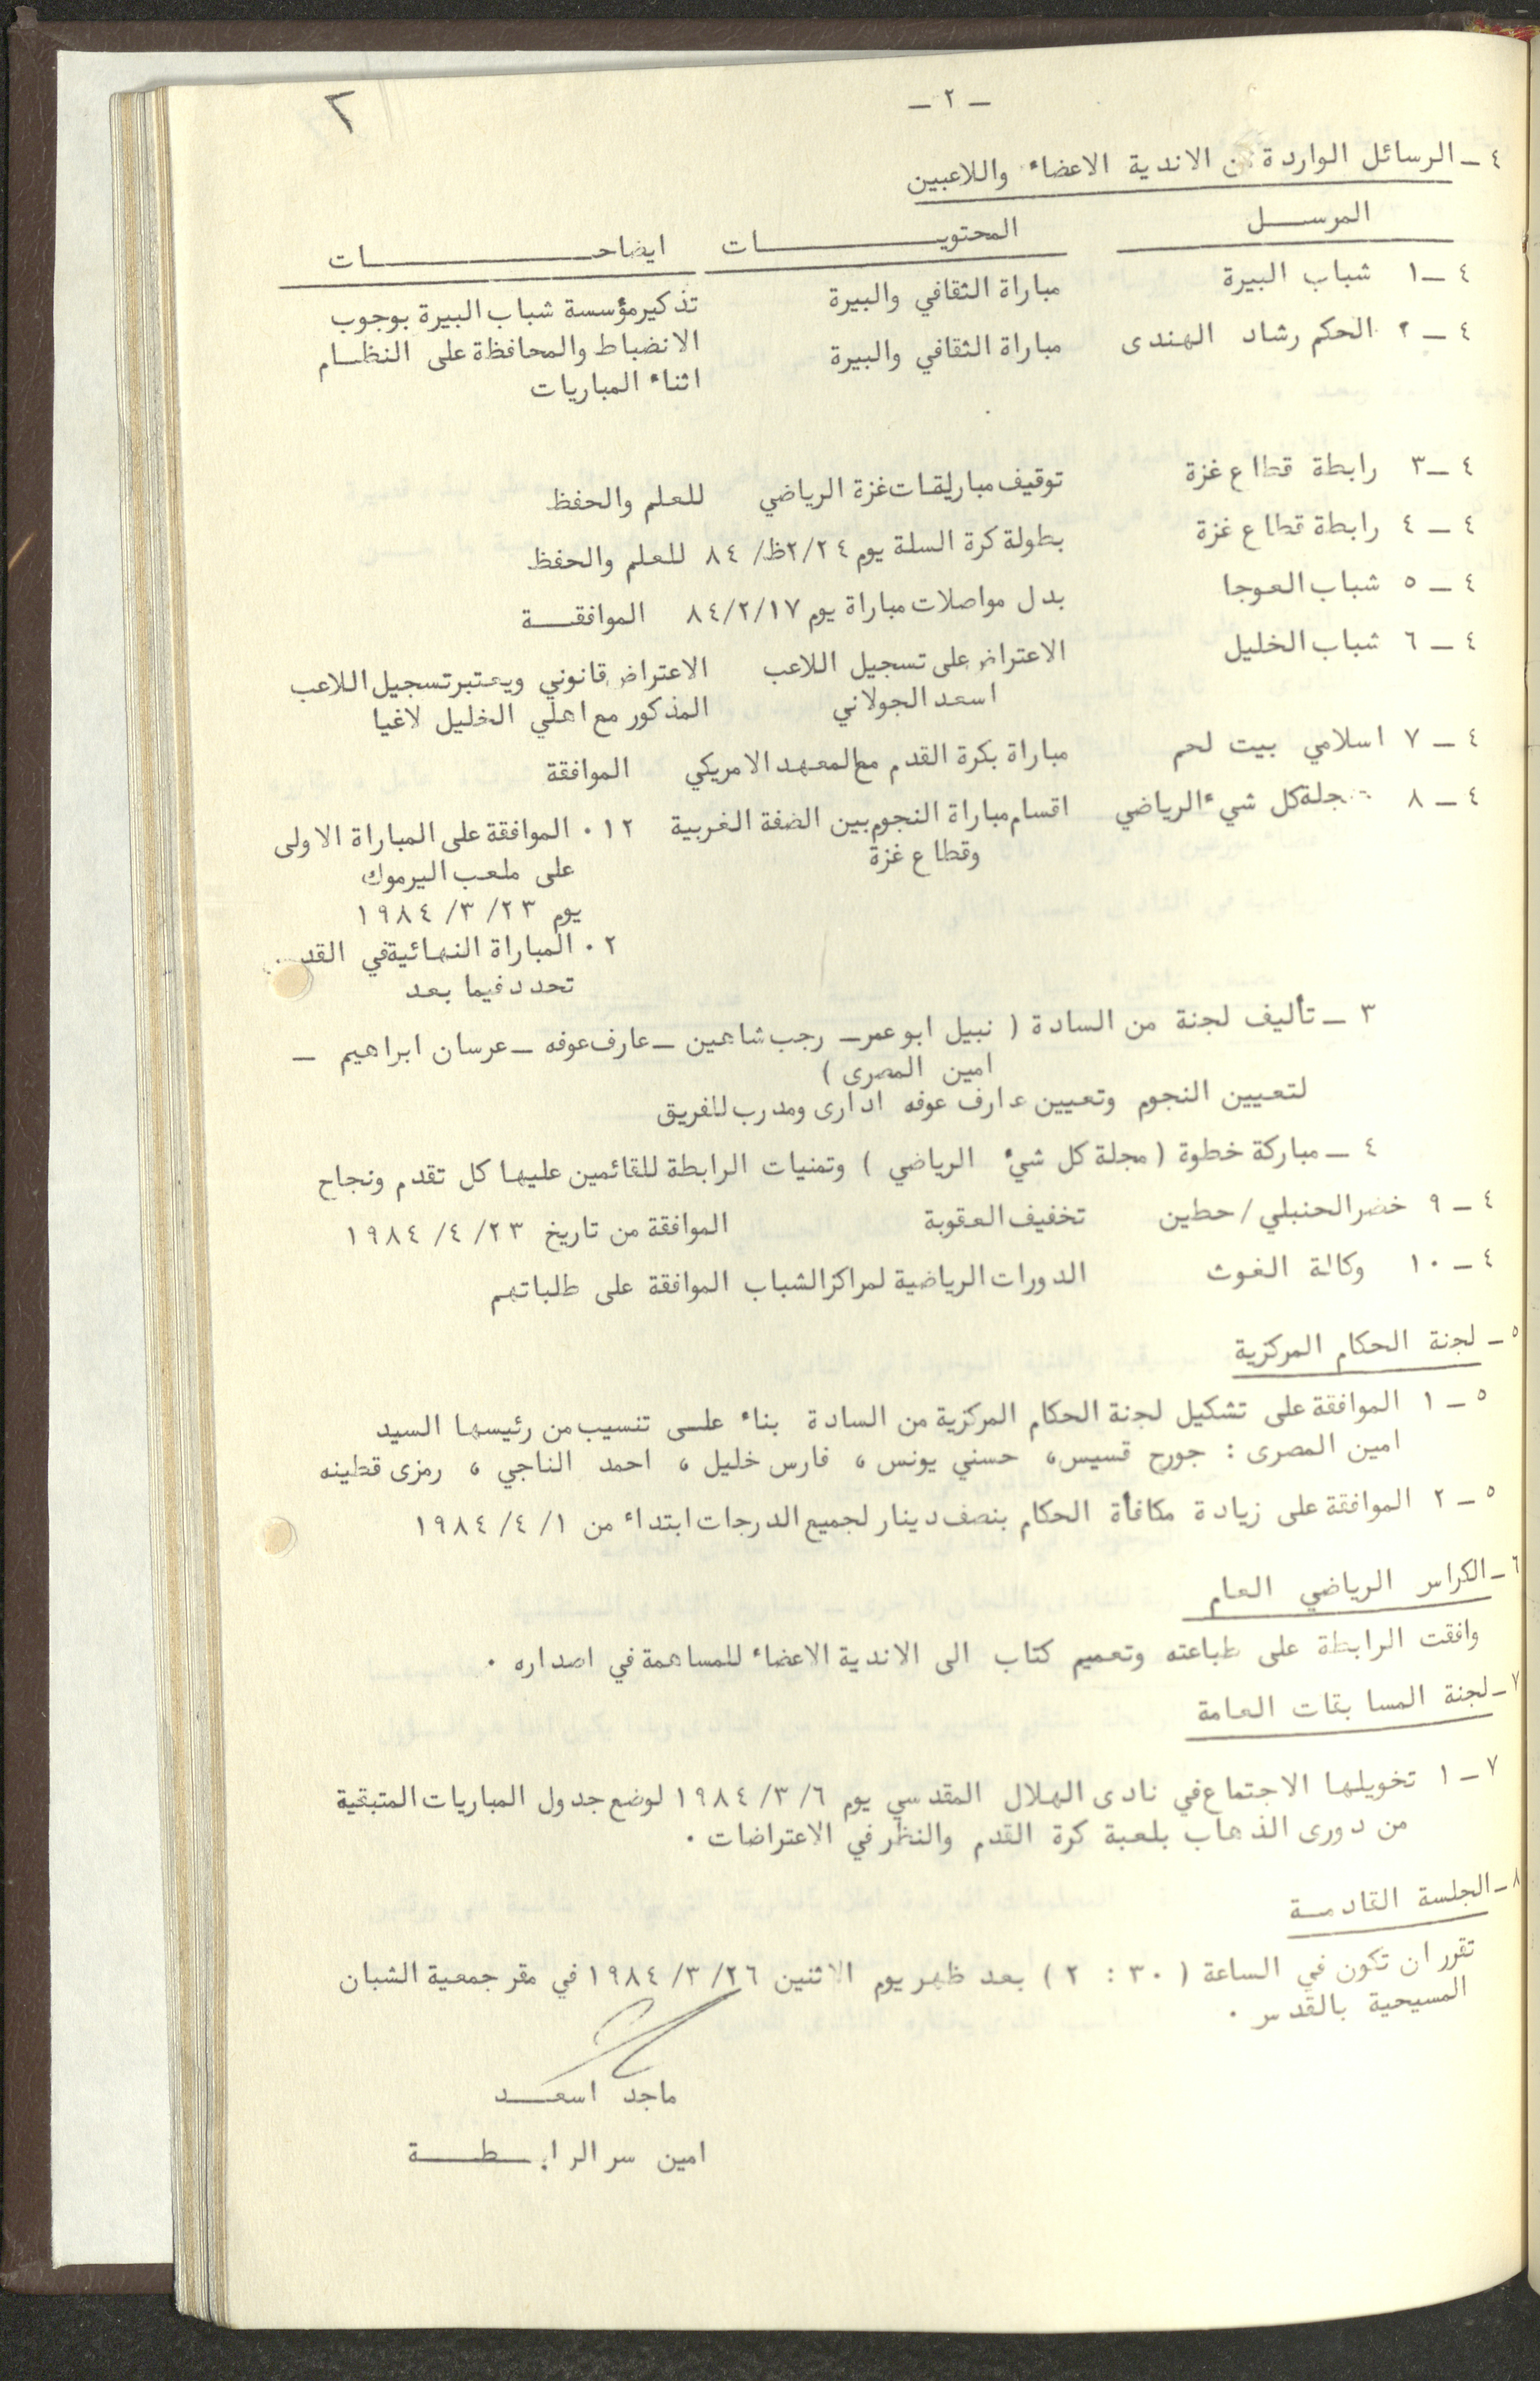 ٢
- ٢ -
٤ - الرسائل الواردة من الاندية الاعضاء واللاعبين
المرسل المحتويات ايضاحات
٤ - ١ شباب البيرة مباراة الثقافي والبيرة تذكير مؤسسة شباب البيرة بوجوب
٤ - ٢ الحكم رشاد الهندى مباراة الثقافي والبيرة الانضباط والمحافظة على النظام
اثناء المباريات
٤ - ٣ رابطة قطاع غزة توقيف غزة الرياضي للعلم والحفظ
٤ - ٤ رابطة قطاع غزة بطولة كرة السلة يوم ٢/٢٤/ ٨٤ للعلم والحفظ
٤ - ٥ شباب العوجا بدل مواصلات مباراة يوم ٨٤/٢/١٧ الموافقة
٤ - ٦ شباب الخليل الاعتراض على تسجيل اللاعب الاعتراض قانوني ويعتبر تسجيل اللاعب
اسعد الجولاني المذكور مع اهلي الخليل لاغيا
٤ - ٧ اسلامي بيت لحم مباراة بكرة القدم مع المعهد الامريكي الموافقة
٤ - ٨ مجلة كل شيء الرياضي اقسام مباراة النجوم بين الضفة الغربية ١٢ . الموافقة على المباراة الاولى
وقطاع غزة على ملعب اليرموك
يوم ٢٣ /٣ /١٩٨٤
٢ . المباراة النهائية في القدس
تحدد فيما بعد
٣ - تأليف لجنة من السادة ( نبيل ابو عمر - رجب شاهين - عارف عوفه - عرسان ابراهيم -
امين المصرى )
لتعيين النجوم وتعيين عارف عوفه ادارى ومدرب للفريق
٤ - مباركة خطوة ( مجلة كل شيء الرياضي ) وتمنيات الرابطة للقائمين عليها كل تقدم ونجاح
٤ - ٩ خضر الحنبلي / حطين تخفيف العقوبة الموافقة من تاريخ ٢٣ /٤ /١٩٨٤
٤ - ١٠ وكالة الغوث الدورات الرياضية لمراكز الشباب الموافقة على طلباتهم
٥ - لجنة الحكام المركزية
٥ - ١ الموافقة على تشكيل لجنة الحكام المركزية من السادة بناء على تنسيب من رئيسها السيد
امين المصرى : جورج قسيس، حسني يونس ، فارس خليل ، احمد الناجي ، رمزى قطينه
٥ - ٢ الموافقة على زيادة مكافأة الحكام بنصف دينار لجميع الدرجات ابتداء من ١ /٤ /١٩٨٤
٦ - الكراس الرياضي العام
وافقت الرابطة على طباعته وتعميم كتاب الى الاندية الاعضاء للمساهمة في اصداره .
٧ - لجنة المسابقات العامة
٧ - ١ تخويلها الاجتماع في نادى الهلال المقدسي يوم ٦ /٣ /١٩٨٤ لوضع جدول المباريات المتبقية
من دورى الذهاب بلعبة كرة القدم والنظر في الاعتراضات .
٨ - الجلسة القادمة
تقرر ان تكون في الساعة ( ٣٠ : ٢ ) بعد ظهر يوم الاثنين ٢٦ /٣ /١٩٨٤ في مقر جمعية الشبان
المسيحية بالقدس .
ماجد اسعد
امين سر الرابطة